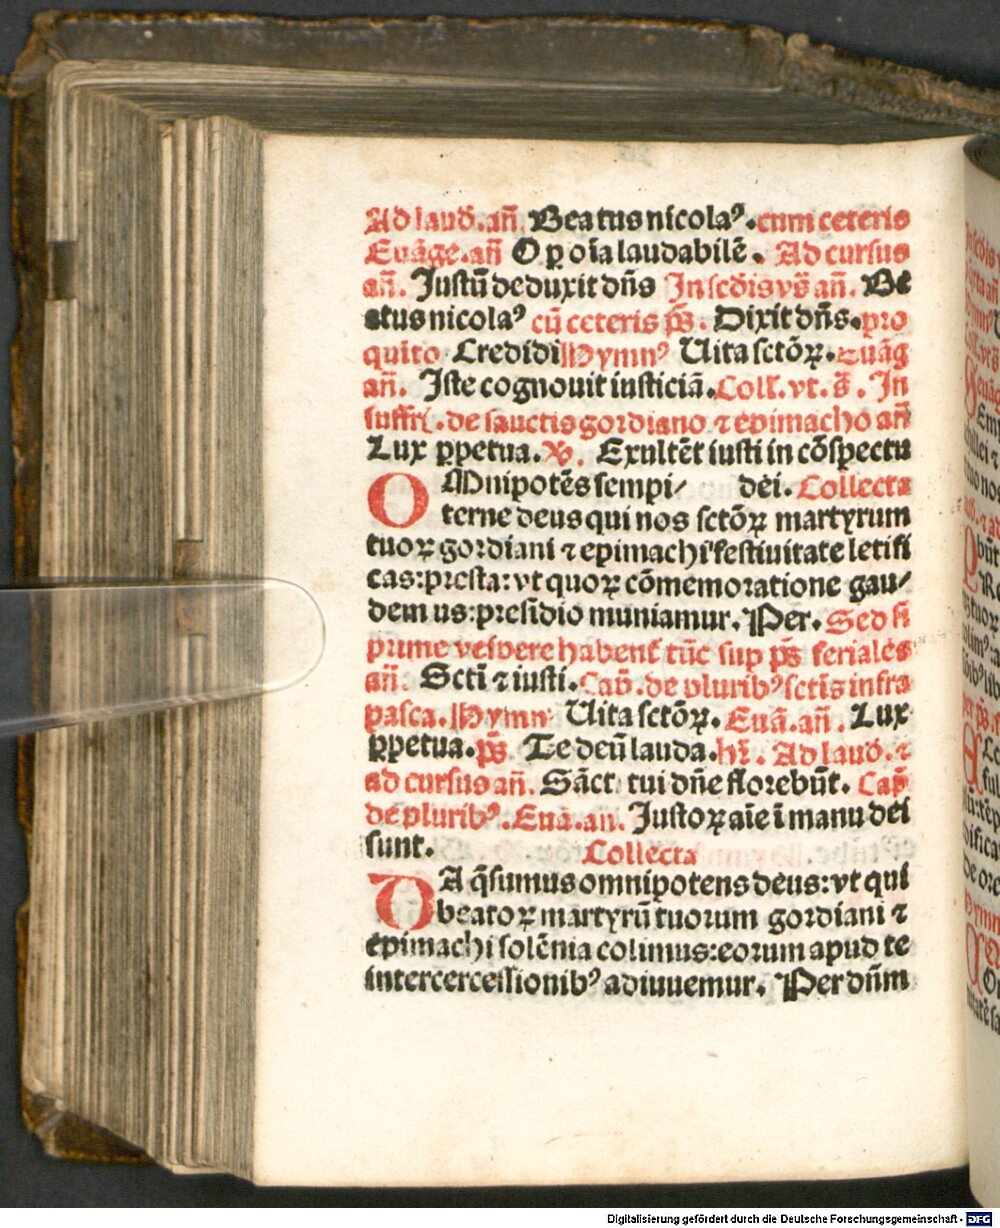 Ad laud̄. an̄. Beatus nicolaꝰ. cum ceteris
Euāge. an̄ O ꝑ oīa laudabilē. Ad cursus
an̄. Justū deduxit dn̄s In sed̄is vs̄ an̄. Be
atus nicolaꝰ cū ceteris ps̄. Dixit dn̄s. pro
quīto Credidi Hymnꝰ Uita sctōꝝ. Euāg
an̄. Iste cognouit iusticiā. Coll. vt. s̄. In
suffrī. de sanctis gordiano ⁊ epimacho an̄
Lux ꝑpetua. V. Exultēt iusti in cōspectu
OMnipotēs sempi/ dei. Collecta
terne deus qui nos sctōꝝ martyrum
tuoꝝ gordiani ⁊ epimachi festiuitate letifi
cas: presta: vt quoꝝ cōmemoratione gau/
demus: presidio muniamur. Per. Sed si
prime vespere habent̄ tūc sup ps̄ feriales
an̄. Sctī ⁊ iusti. Cap̄. de pluribꝰ sctīs infra
pasca. Hymn Uita sctōꝝ. Euā. an̄. Lux
ꝑpetua. ps̄ Te deū lauda. hr̄. Ad laud̄. ⁊
ad cursus an̄. Sāct tui dn̄e florebūt. Cap̄
de pluribꝰ. Euā. an. Justoꝝ aīe ī manu dei
sunt. Collecta
DA q̄sumus omnipotens deus: vt qui
beatoꝝ martyrū tuorum gordiani ⁊
epimachi solēnia colimus: eorum apud te
intercercessionibꝰ adiuuemur. Per dn̄m
Digitalisierung gefördert durch die Deutsche Forschungsgemeinschaft - DFG